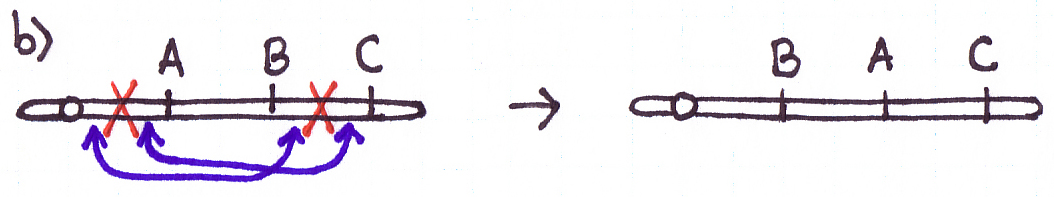 b)
A B C → B A C